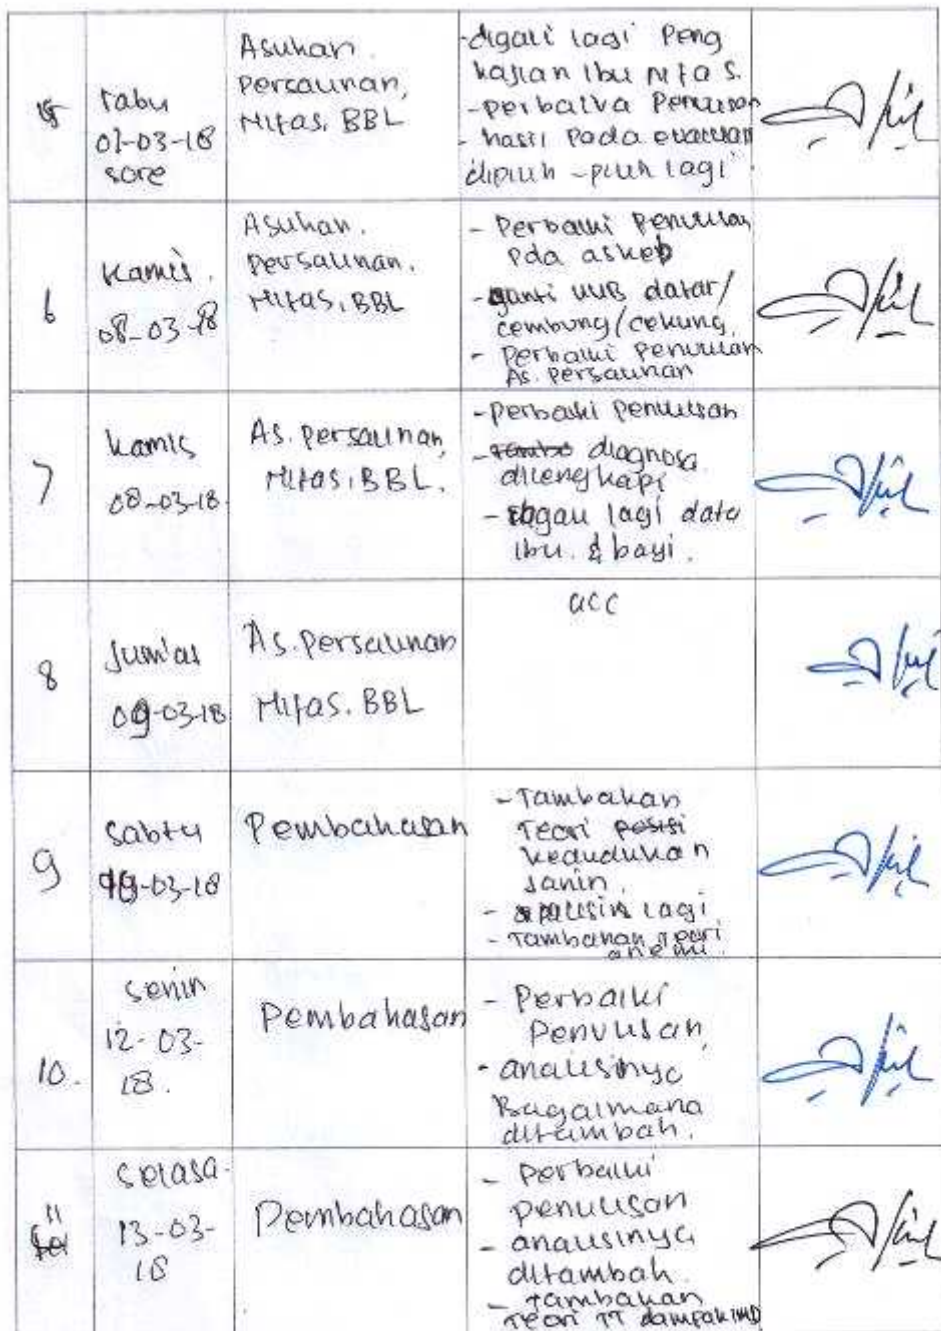 5
rabu
07-03-18
sore
Asuhan
Persalinan,
Nifas, BBL
-digali lagi Peng
kajian Ibu Nifas.
-perbaika Penulisan
- hasil Pada evaluasi
dipilih -pilih lagi
6
Kamis.
08-03-18
Asuhan.
persalinan.
Nifas, BBL
- Perbaiki Penulisan
pda askeb
- ganti UUB datar/
cembung/cekung.
- Perbaiki Penulisan
As. Persalinan
7
kamis
08-03-18.
As. persalinan,
Nifas, BBL.
-Perbaiki Penulisan
- diagnosa
dilengkapi
- lagi data
ibu & bayi.
8
Jum'at
09-03-18
As. Persalinan
Nifas. BBL
acc
9
Sabtu
10-03-18
Pembahasan
- Tambakan
Teori posisi
kedudukan
Janin.
- lagi
- Tambahan Teori
anemi.
10.
Senin
12-03-
18.
Pembahasan
- Perbaiki
Penulisan
- analisinya
Bagaimana
ditambah.
11
Selasa.
13-03-
18
Pembahasan
- Perbaiki
penulisan
- analisinya
ditambah.
- Tambakan
Teori TT dampak IMD